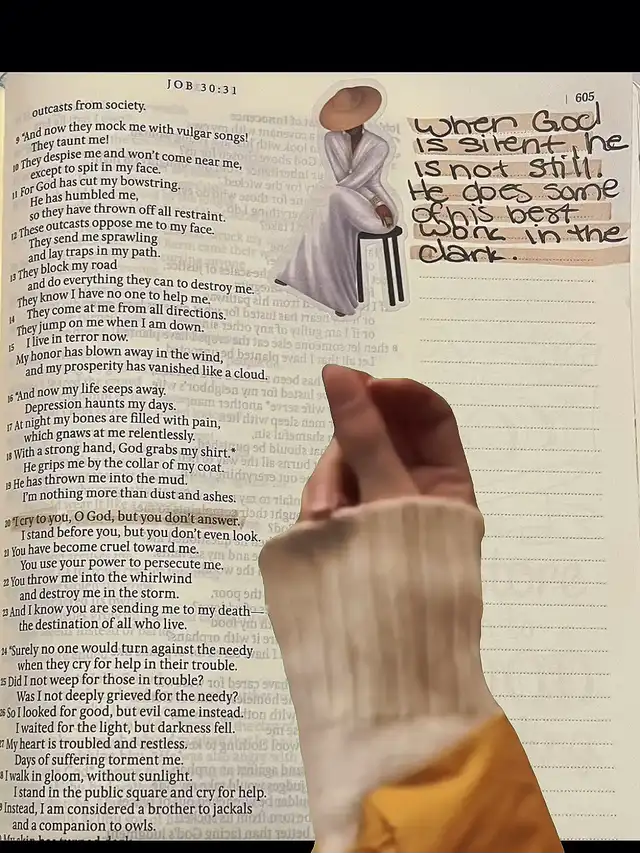 JOB 30:31
605
outcasts from society.
9 "And now they mock me with vulgar songs!
They taunt me!
10 They despise me and won't come near me,
except to spit in my face.
11 For God has cut my bowstring.
He has humbled me,
so they have thrown off all restraint.
12 These outcasts oppose me to my face.
They send me sprawling
and lay traps in my path.
13 They block my road
and do everything they can to destroy me.
They know I have no one to help me.
14 They come at me from all directions.
They jump on me when I am down.
15 I live in terror now.
My honor has blown away in the wind,
and my prosperity has vanished like a cloud.
16 "And now my life seeps away.
Depression haunts my days.
17 At night my bones are filled with pain,
which gnaws at me relentlessly.
18 With a strong hand, God grabs my shirt.*
He grips me by the collar of my coat.
19 He has thrown me into the mud.
I'm nothing more than dust and ashes.
20 "I cry to you, O God, but you don't answer.
I stand before you, but you don't even look.
21 You have become cruel toward me.
You use your power to persecute me.
22 You throw me into the whirlwind
and destroy me in the storm.
23 And I know you are sending me to my death—
the destination of all who live.
24 "Surely no one would turn against the needy
when they cry for help in their trouble.
25 Did I not weep for those in trouble?
Was I not deeply grieved for the needy?
26 So I looked for good, but evil came instead.
I waited for the light, but darkness fell.
27 My heart is troubled and restless.
Days of suffering torment me.
8 I walk in gloom, without sunlight.
I stand in the public square and cry for help.
9 Instead, I am considered a brother to jackals
and a companion to owls.
When God
is silent, he
is not still.
He does some
of his best
work in the
dark.